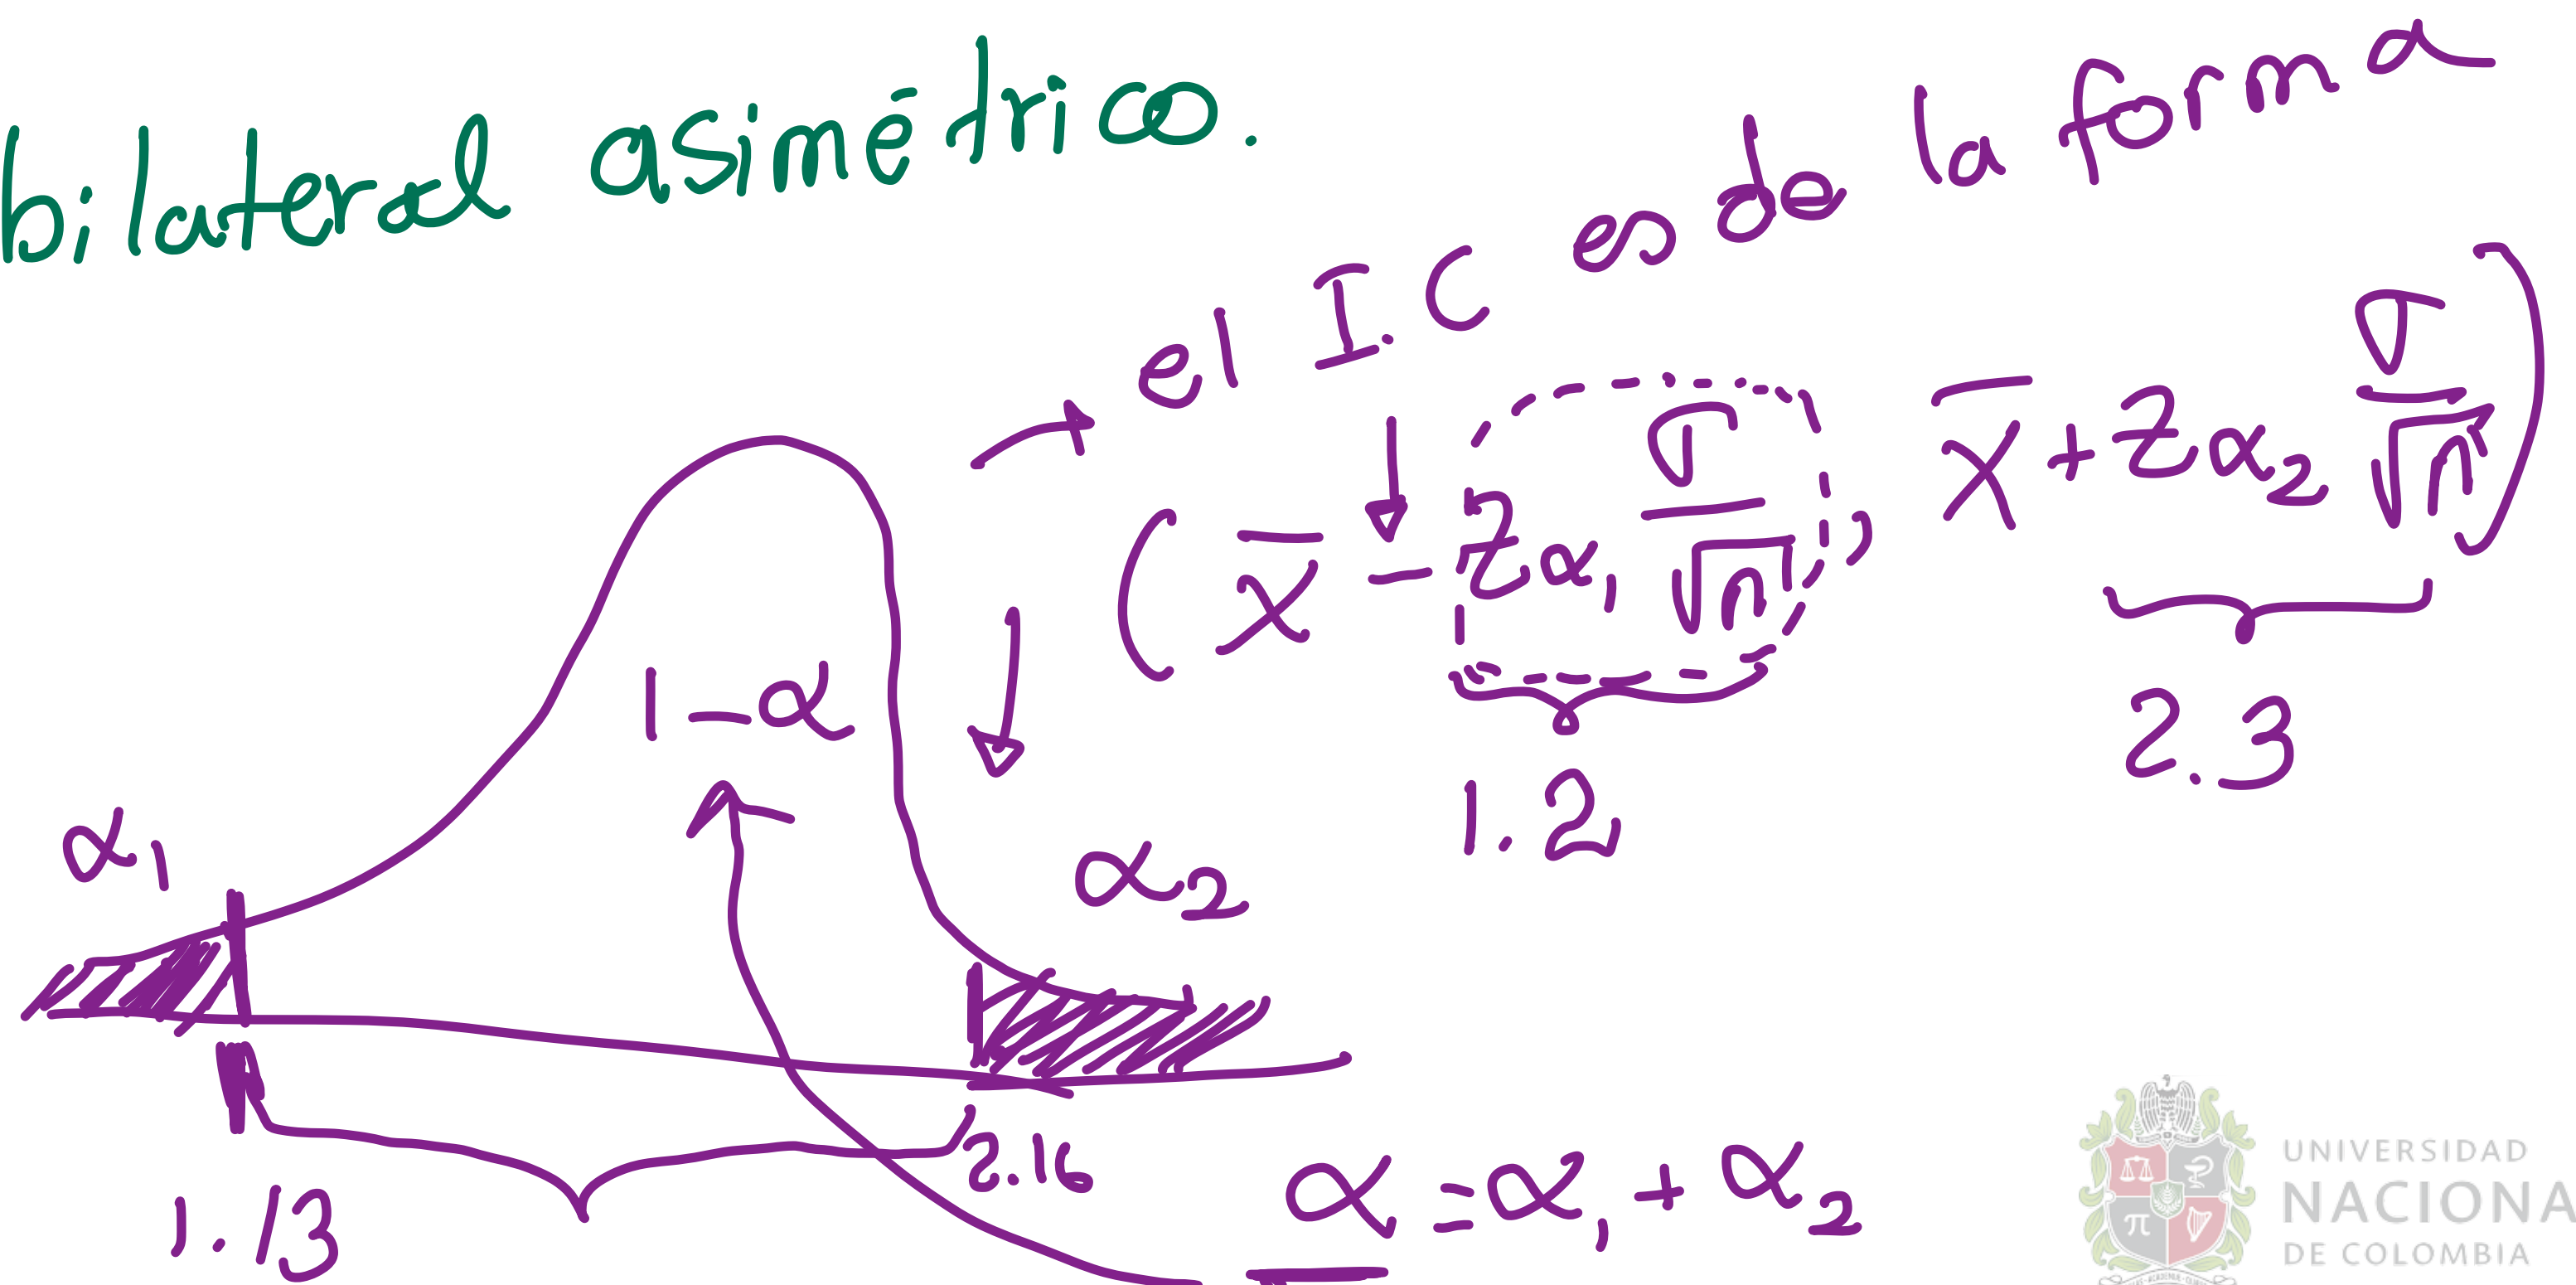 bilateral asimétrico.
→ el I.C es de la forma
( x̄ - z α₁ σ/√n , x̄ + z α₂ σ/√n )
1.2
2.3
1-α
α₁
α₂
1.13
2.16
α = α₁ + α₂
UNIVERSIDAD
NACIONA
DE COLOMBIA